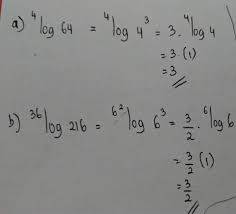 a) ⁴log 64 = ⁴log 4³ = 3 . ⁴log 4
= 3 . (1)
= 3
b) ³⁶log 216 = ^{6²}log 6³ = 3/2 . ⁶log 6
= 3/2 (1)
= 3/2